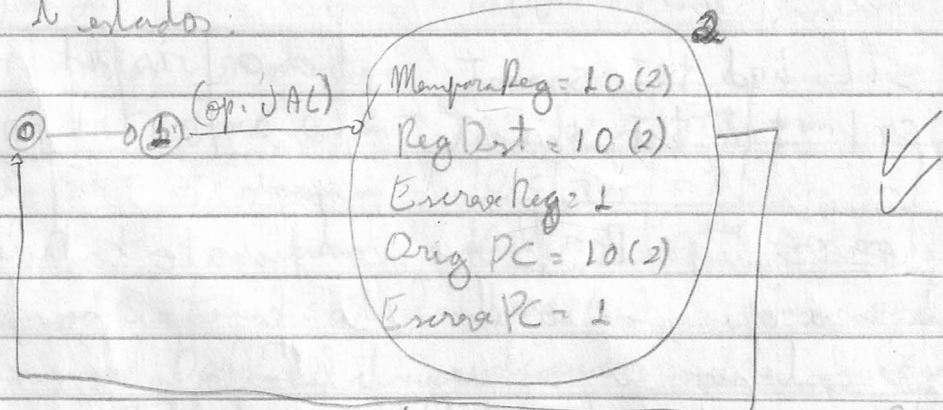 estados.
2
(op. JAL)
0 1
MemparaReg = 10 (2)
RegDst = 10 (2)
EscreveReg = 1
Orig PC = 10 (2)
Escreve PC = 1